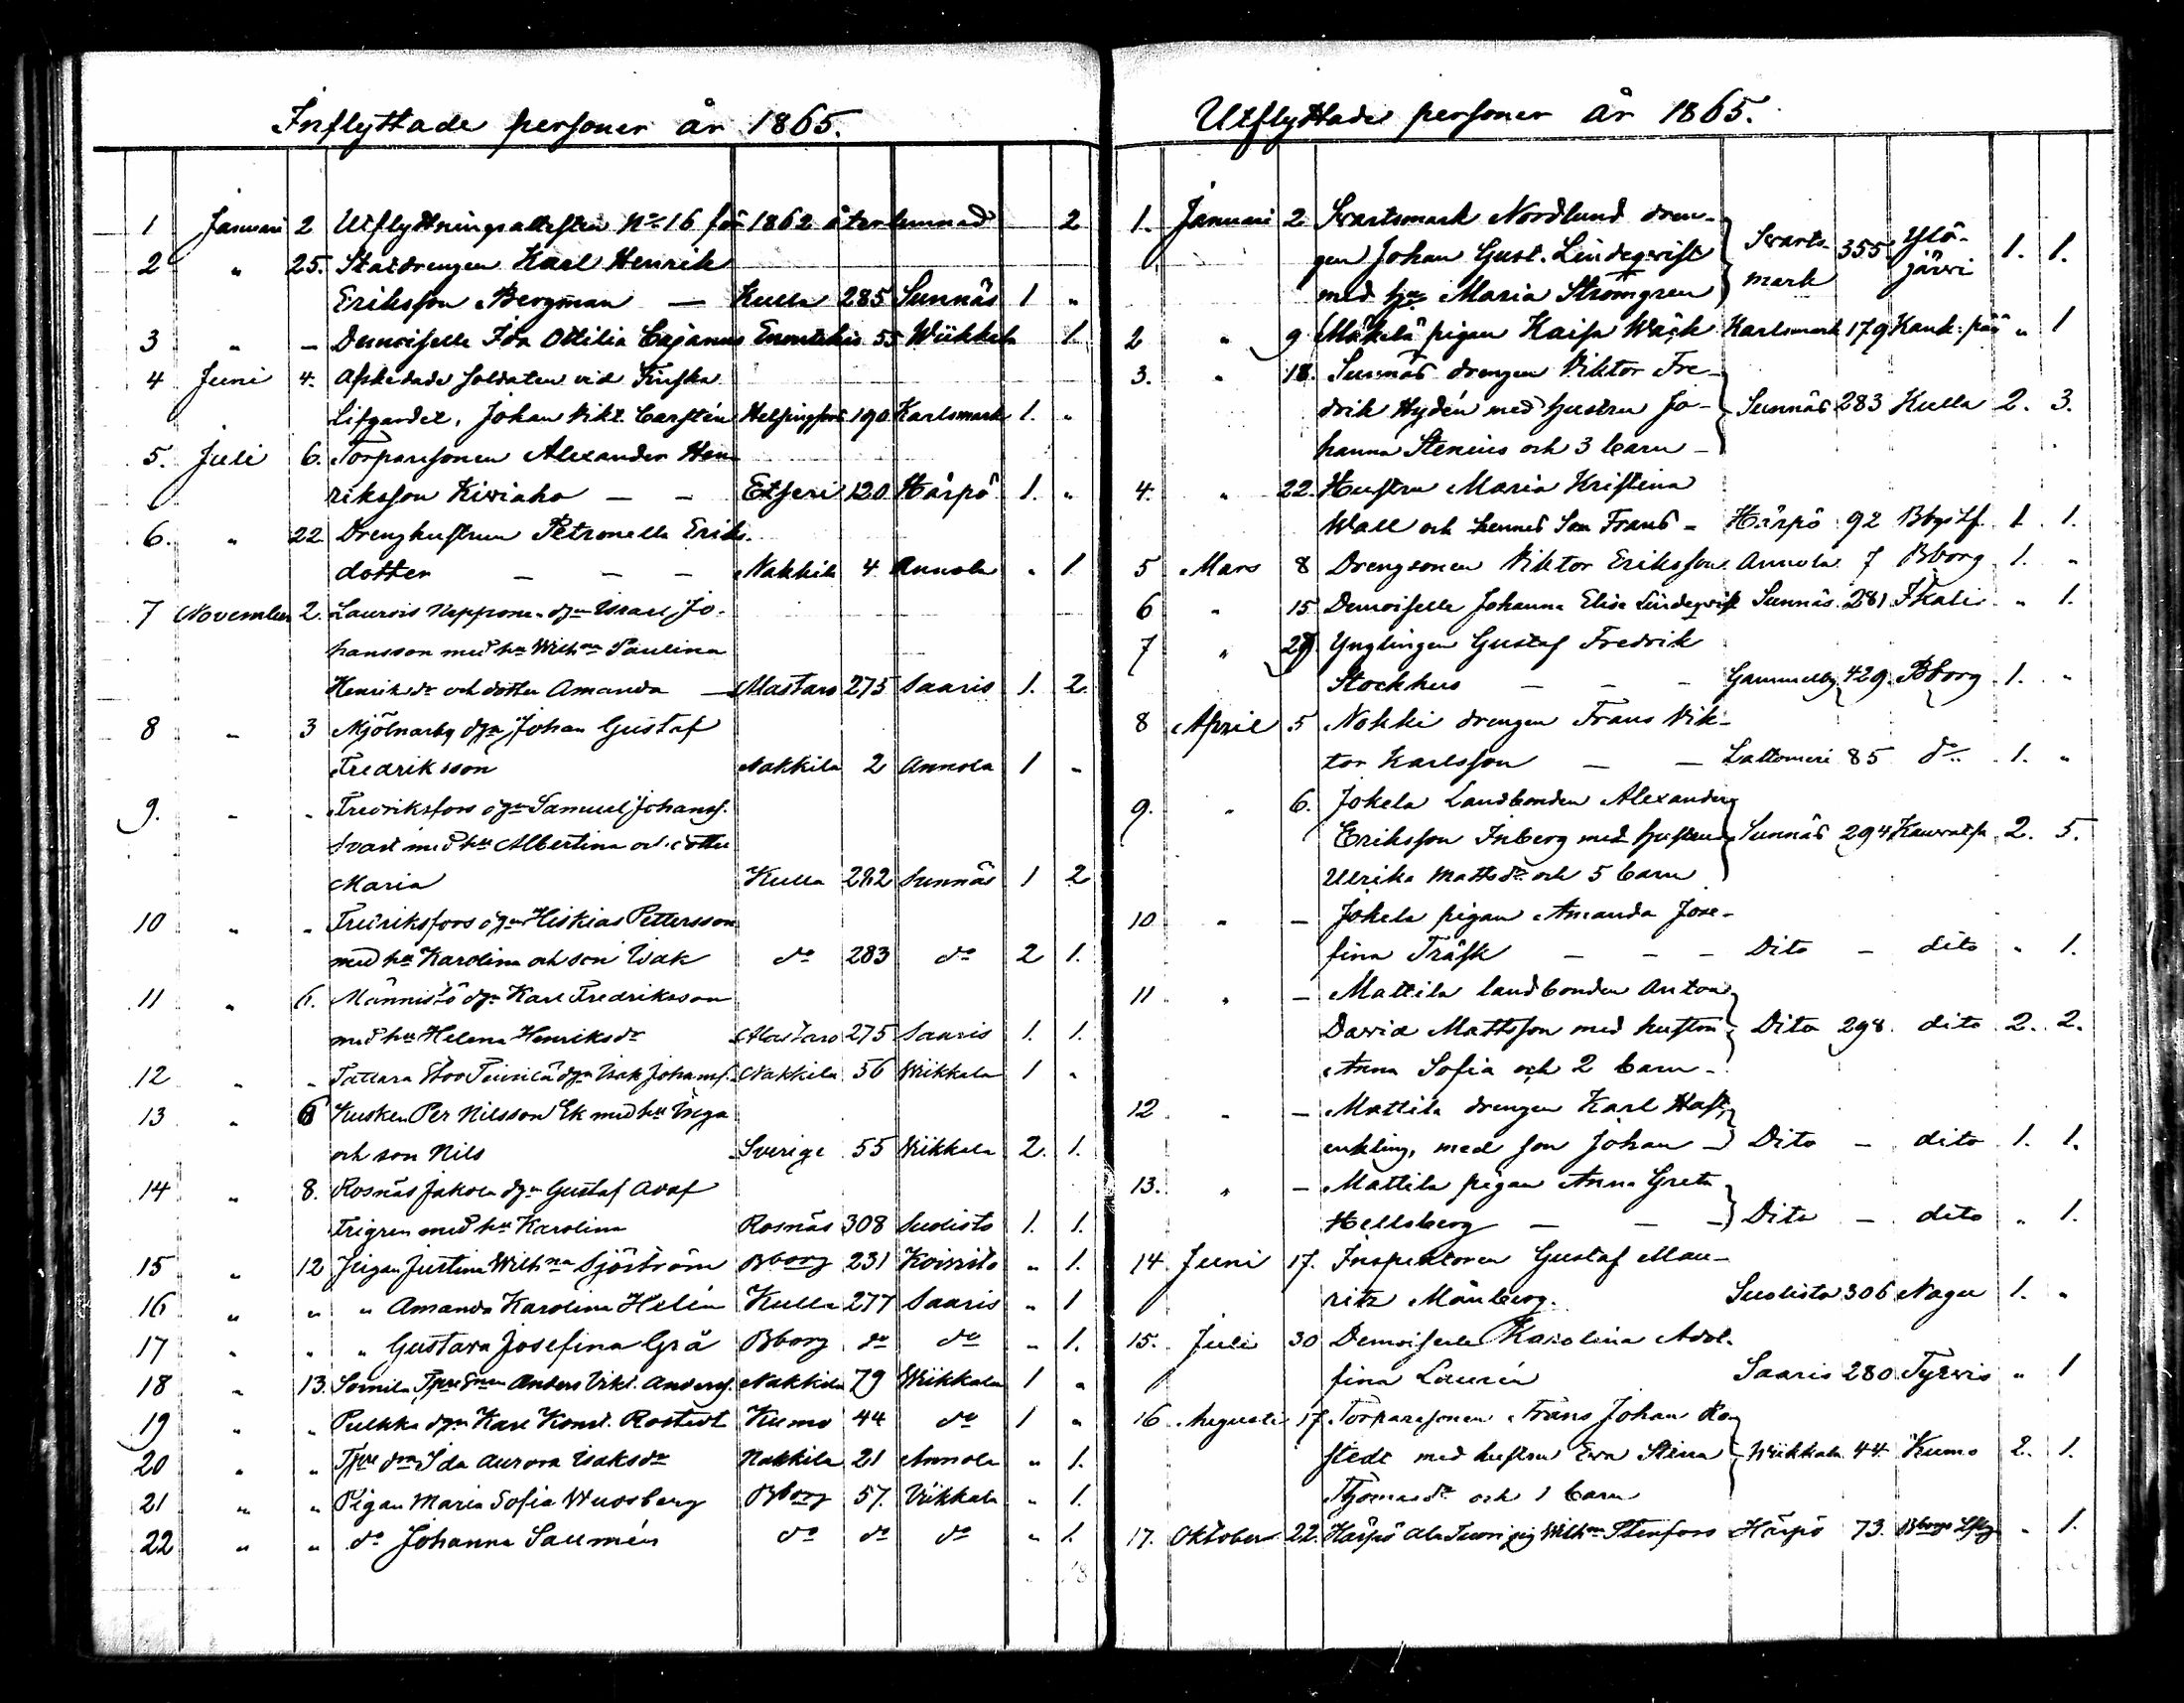 Inflyttade personer år 1865.
1 Januari 2 Utflyttningsattesten No 16 för 1862 återlemnad 2
2 " 25. Statdrengen Karl Henrik
Eriksson Bergman — Kulla 285 Sunnäs 1 "
3 " — Demoiselle Ida Ottilia Cajanus Enontekis 55 Wiikkala 1.
4 Juni 4. Afskedade soldaten vid Finska
Lifgardet, Johan Vikt. Carstén Helsingfors 190 Karlsmark 1. "
5. Juli 6. Torparesonen Alexander Hen
riksson Kiviaho — — Etseri 120 Härpö 1. "
6. " 22 Drenghustrun Petronella Eriks
dotter — — — Nakkila 4 Annola " 1
7 November 2. Laurois Neppone. dgn Israel Jo-
hansson med hu Wilhna Paulina
Henriksdr och dotter Amanda — Mastaro 275 Saaris 1. 2
8 " 3 Mjölnarby dgn Johan Gustaf
Fredriksson Nakkila 2 Annola 1 "
9. " " Fredriksfors dgn Samuel Johanss.
Svart med hu Albertina och dotter
Maria Kulla 282 Sunnäs 1 2
10 " " Fredriksfors dgn Hiskias Pettersson
med hu Karolina och son Isak do 283 do 2 1.
11 " 6. Männistö dgn Karl Fredriksson
med hu Helena Henriksdr Alastaro 275 Saaris 1. 1.
12 " " Tattara dgn Isak Johanss. Nakkila 56 Wiikkala 1 "
13 " 6 Kusken Per Nilsson Ek med hu Inga
och son Nils Sverige 55 Wiikkala 2. 1.
14 " 8. Rosnäs Jakola dgn Gustaf Adaf
Frigren med hu Karolina Rosnäs 308 Suolisto 1. 1.
15 " 12 Pigan Justina Wilhna Sjöström Bborg 231 Koivisto " 1.
16 " " " Amanda Karolina Helén Kulla 277 Saaris " 1
17 " " " Gustava Josefina Grå Bborg do do " 1.
18 " 13. Somila Anders Vikt. Anderss. Nakkila 79 Wiikkala 1 "
19 " " Pulkka dgn Karl Konst. Rostedt Kumo 44 do 1 "
20 " " Ida Aurora Isaksdr Nakkila 21 Annola " 1.
21 " " Pigan Maria Sofia Wuosberg Bborg 57. Viikkala " 1.
22 " " do Johanna Sallmén do do do " 1.
Utflyttade personer år 1865.
1. Januari 2 Svartsmark Nordlund dren-
gen Johan Gust. Lindeqvist Svarts- 355 Ylö- 1. 1.
med hu Maria Strömgren mark järvi
2 " 9 Mäkelä pigan Kaisa Wäck Karlsmark 179 Kank:pää " 1
3. " 18. Sunnäs drengen Viktor Fre-
drik Hydén med hustru Jo- Sunnäs 283 Kulla 2. 3.
hanna Stenius och 3 barn —
4. " 22. Hustru Maria Kristina
Wall och hennes son Frans - Härpö 92 Bbgs Lf. 1. 1.
5 Mars 8 Drengsonen Viktor Eriksson Annola 7 Bborg 1. "
6 " 15 Demoiselle Johanna Elisa Lindeqvist Sunnäs 281 Ikalis " 1.
7 " 29 Ynglingen Gustaf Fredrik
Stockhus — — — Gammelby 429. Bborg 1. "
8 April 5 Nokki drengen Frans Vik-
tor Karlsson — — Lattomeri 85 do 1. "
9. " 6. Jokela Landbonden Alexander
Eriksson Inberg med hustru Sunnäs 294 Kauvatsa 2. 5.
Ulrika Mattsdr och 5 barn
10 " — Jokela pigan Amanda Jose-
fina Träsk — — — Dito — dito " 1.
11 " — Mattila landbonden Anton
David Mattsson med hustru Dito 298 dito 2. 2.
Anna Sofia och 2 barn -
12 " — Mattila drengen Karl Hast,
enkling, med son Johan — Dito — dito 1. 1.
13. " — Mattila pigan Anna Greta
Hellsberg — — — Dito — dito " 1.
14 Juni 17. Inspektoren Gustaf Mau-
ritz Mönberg. Suolisto 306 Nagu 1. "
15. Juli 30 Demoiselle Karolina Adol-
fina Laurén Saaris 280 Tyrvis " 1
16 Augusti 17. Torparesonen Frans Johan Ro-
stedt med hustru Eva Stina Wiikkala 44 Kumo 2. 1.
Thomasdr och 1 barn
17. Oktober 22. Härpö Ala Tuori pig Wilhna Stenfors Härpö 73. Bborgs Lfg " 1.